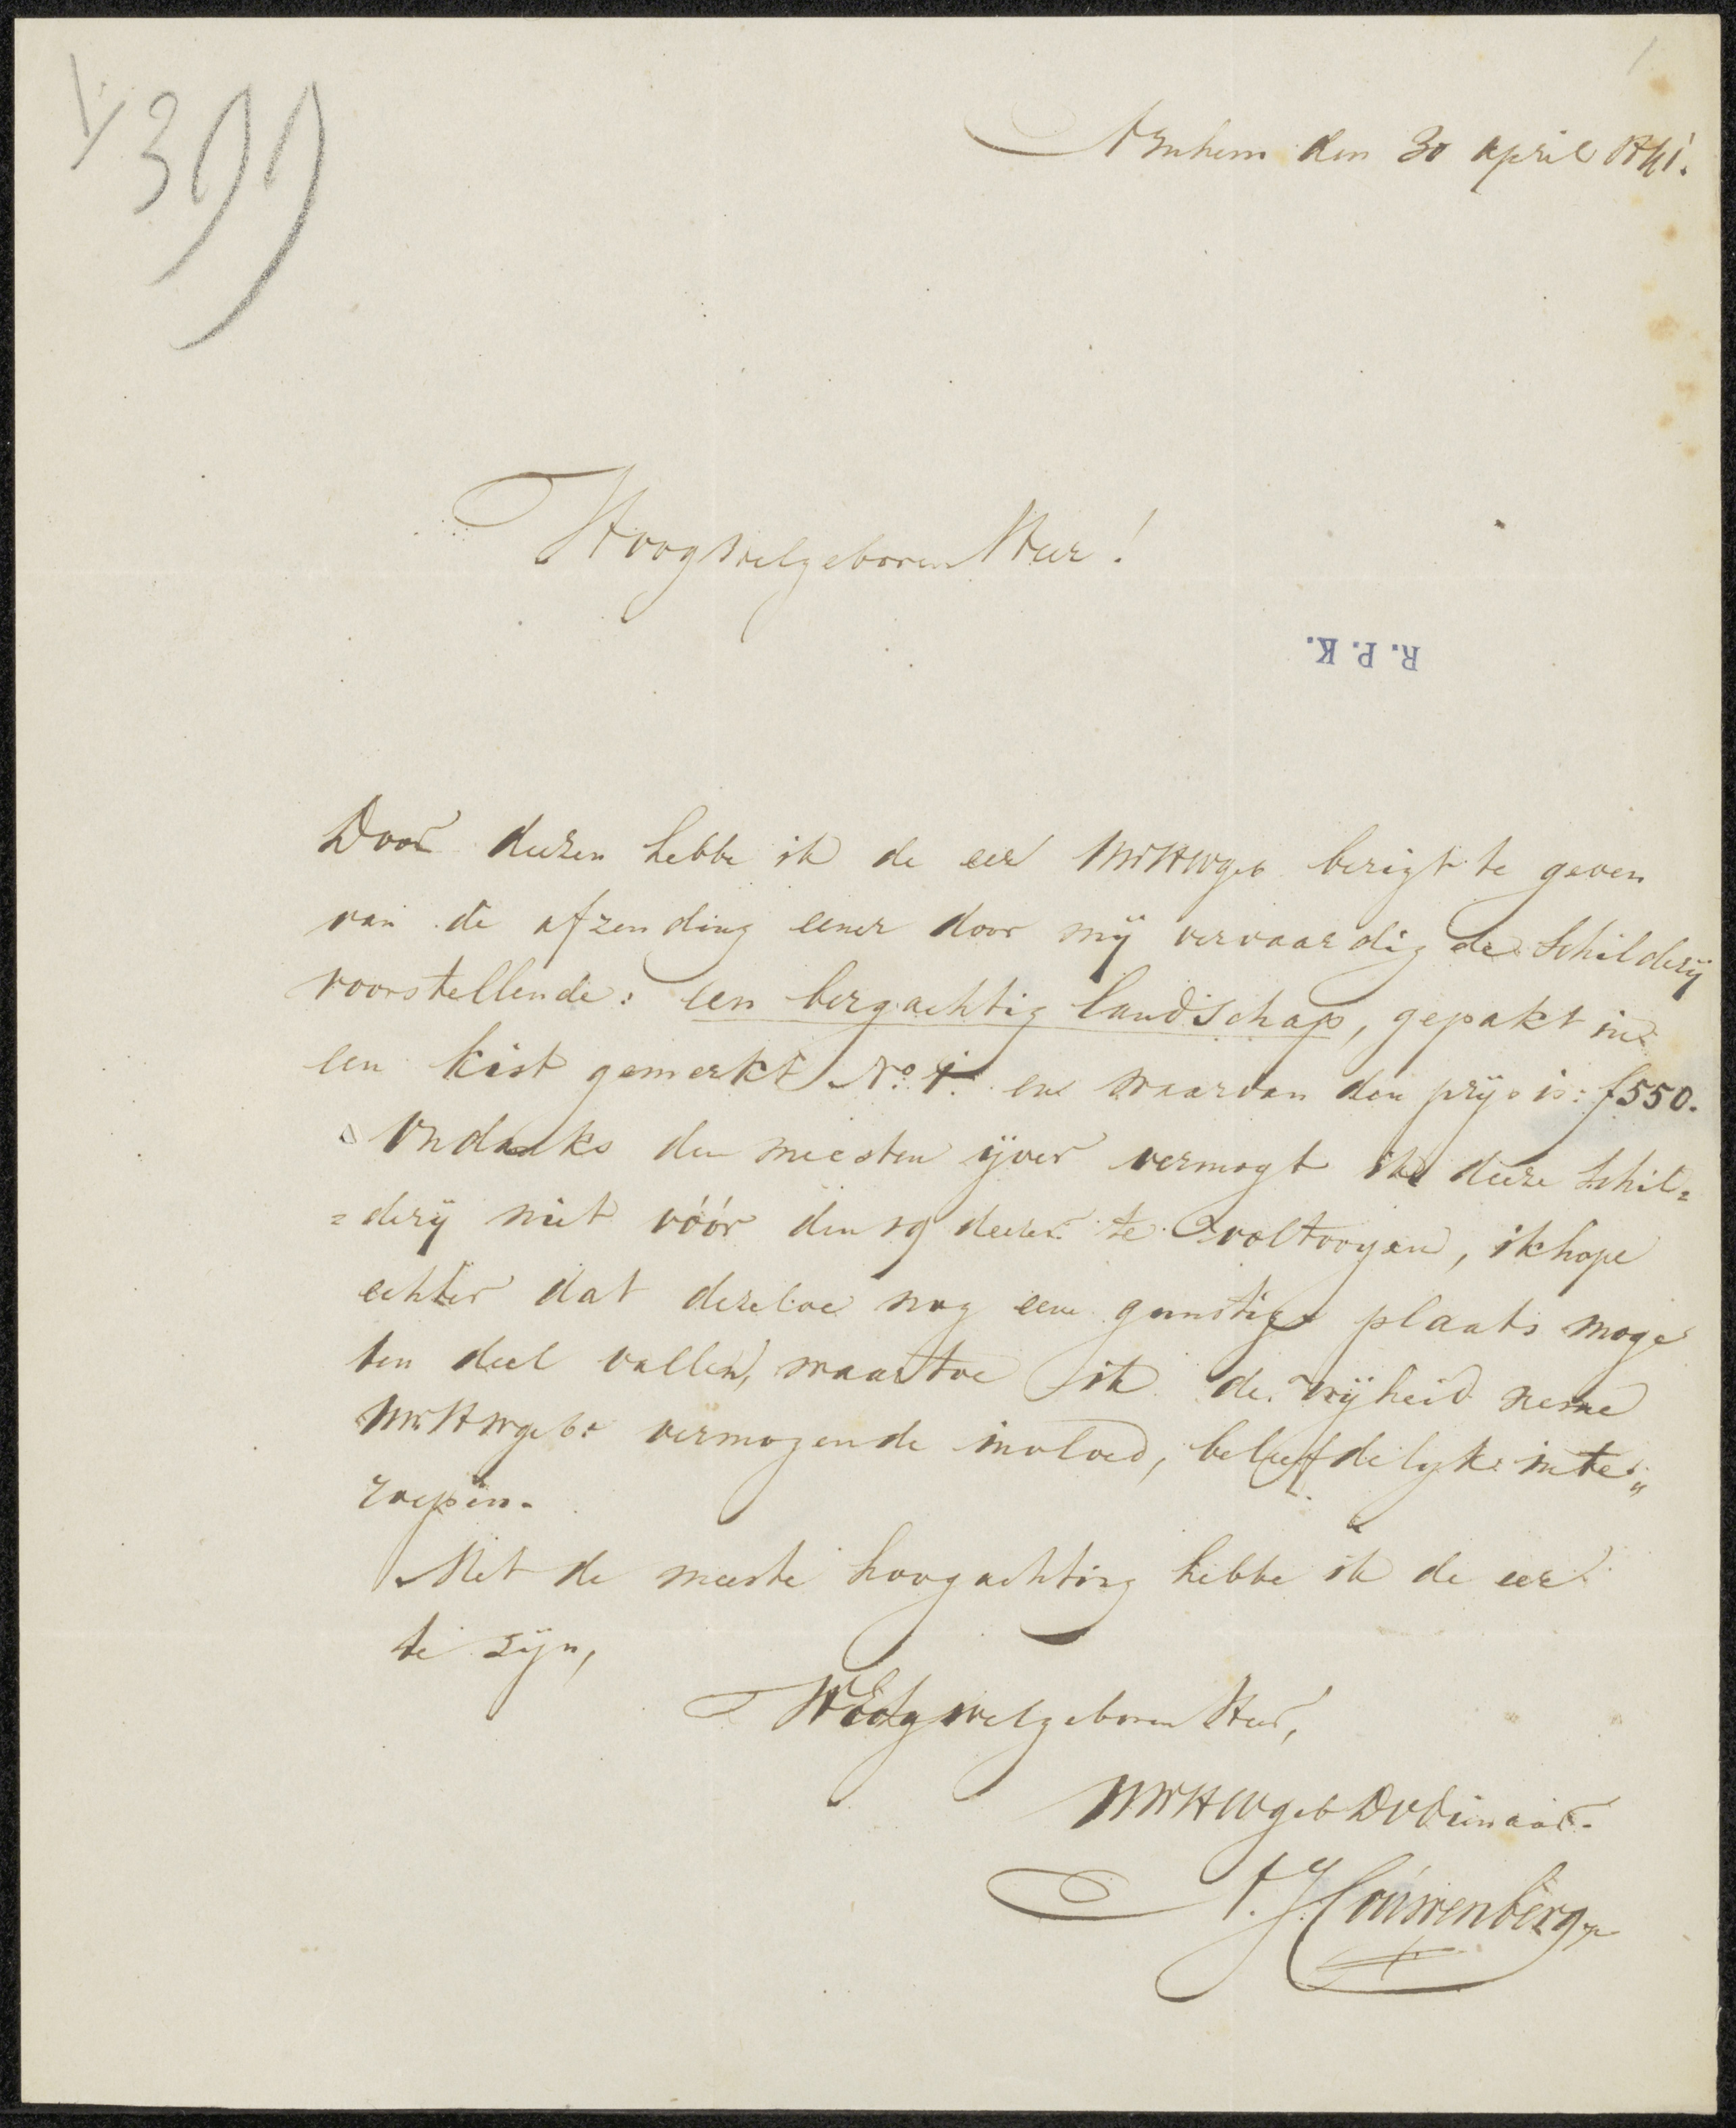 399
Arnhem den 30 april 1841.
Hoog Welgeboren Heer!
R. P. K.
Door deezen hebbe ik de eer UWHWgeb berigt te geven
van de afzending eener door mij vervaardigde Schilderij
voorstellende: een bergachtig landschap, gepakt in
een kist gemerkt No. 1. en waarvan den prijs is: f550.
Ondanks den meesten ijver vermogt ik deeze Schil=
=derij niet vóór den 29 deezer te voltooyen, ik hope
echter dat dezelve nog eene gunstige plaats moge
ten deel vallen, waartoe ik de vrijheid neeme
UWHWgeb: vermogende invloed, beleefdelyk in te„
roepen.
Met de meeste hoogachting hebbe ik de eer
te zijn,
HoogWelgeboren Heer,
UWHWgeb DVDienaar.
A. J. Couwenberg